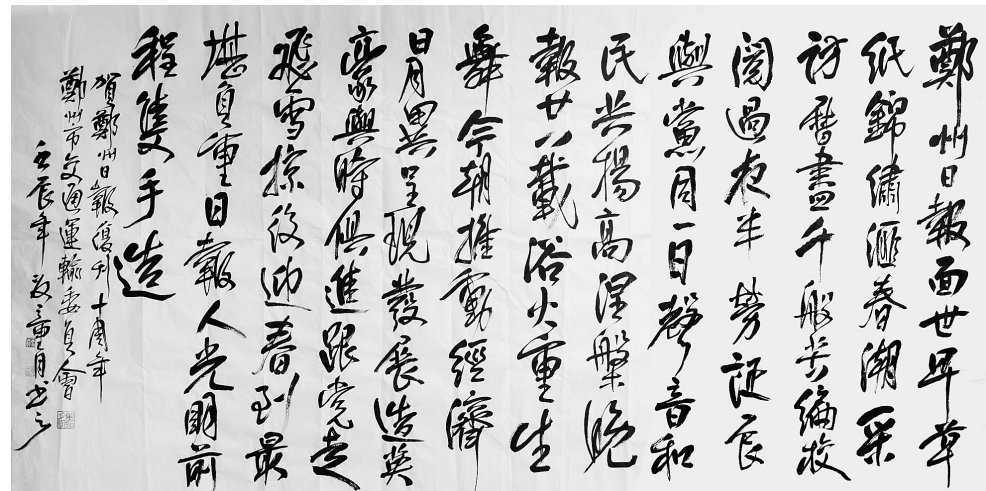 鄭州日報面世早草
紙錦繡匯春潮采
訪曆盡千般苦編校
過夜半勞誕辰
與黨同一日聲音和
民共揚高涅槃晚
報廿八載浴火重生
舞今朝推動經濟
日月異呈現發展造英
豪與時俱進跟党走
飛雪掠後迎春到最
堪負重日報人光明前
程隻手造
賀鄭州日報復刊十周年
鄭州市交通運輸委員會
壬辰年重月书之